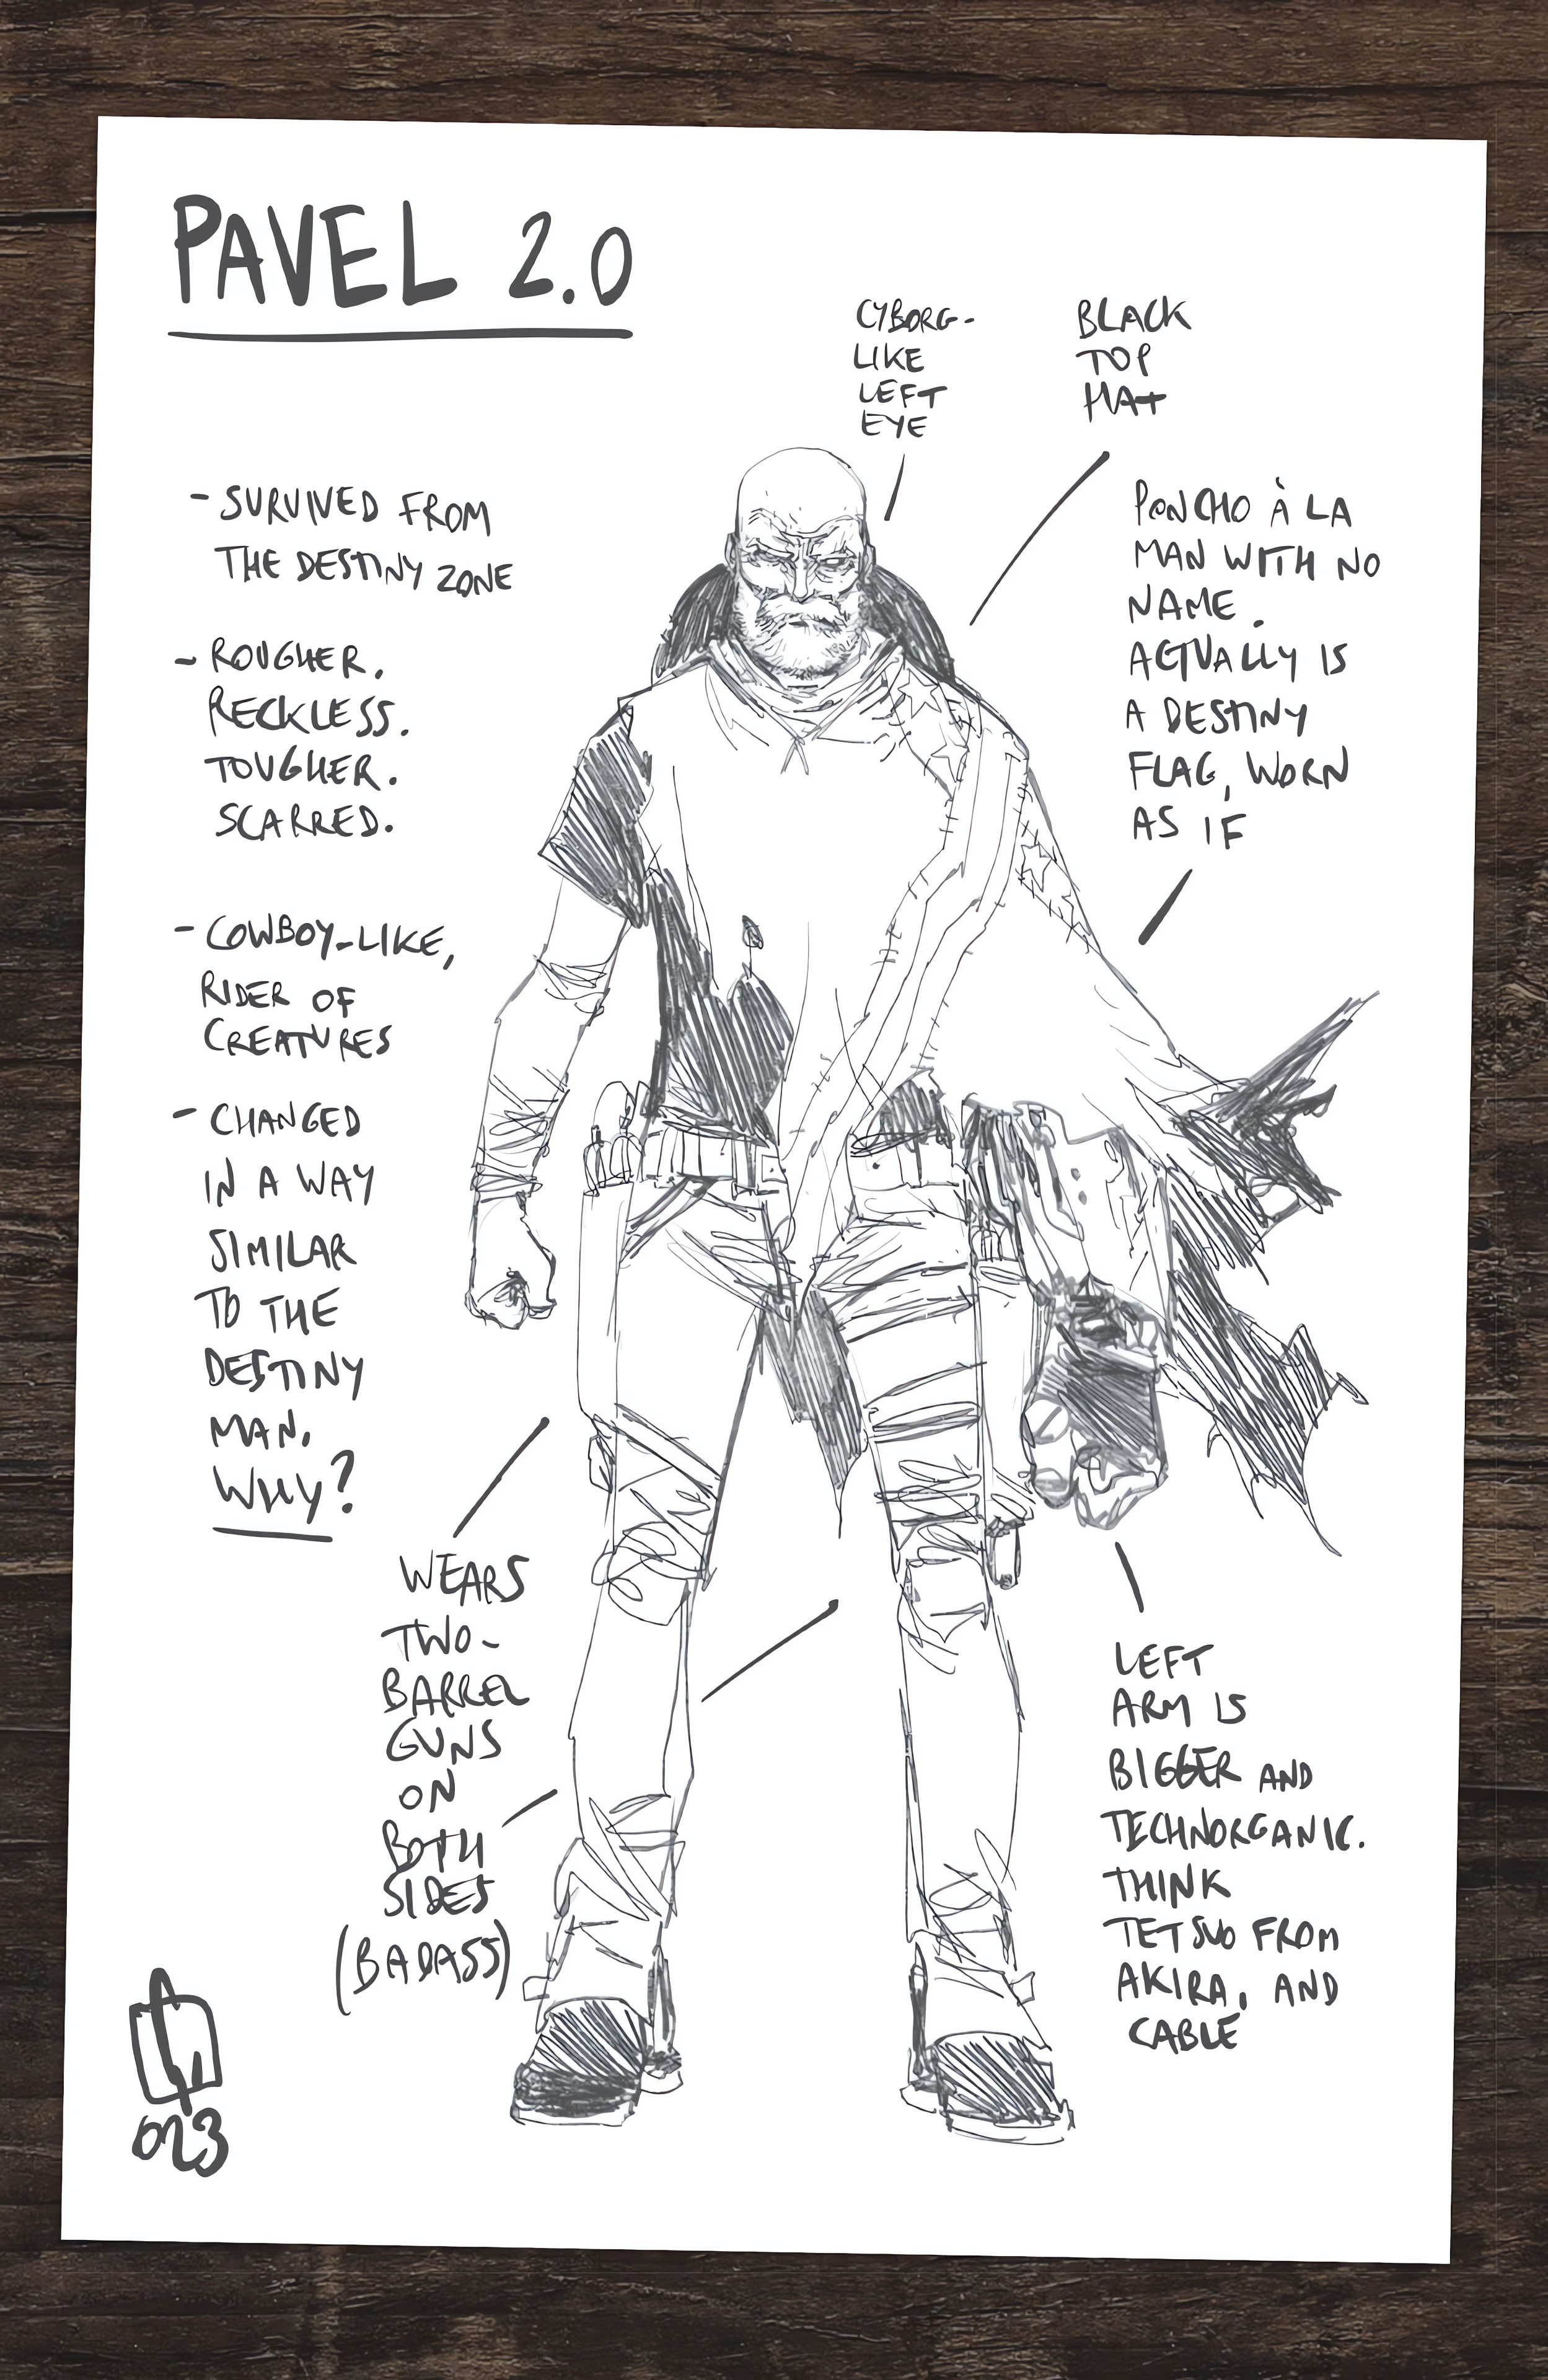 PAVEL 2.0
CYBORG-
LIKE
LEFT
EYE
BLACK
TOP
HAT
- SURVIVED FROM
THE DESTINY ZONE
- ROUGHER.
RECKLESS.
TOUGHER.
SCARRED.
- COWBOY-LIKE,
RIDER OF
CREATURES
- CHANGED
IN A WAY
SIMILAR
TO THE
DESTINY
MAN.
WHY?
PONCHO À LA
MAN WITH NO
NAME.
ACTUALLY IS
A DESTINY
FLAG, WORN
AS IF
WEARS
TWO-
BARREL
GUNS
ON
BOTH
SIDES
(BADASS)
LEFT
ARM IS
BIGGER AND
TECHNORGANIC.
THINK
TETSUO FROM
AKIRA, AND
CABLE
023